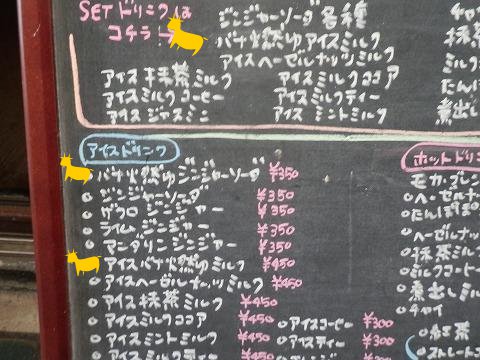 SETドリンクは
コチラ→
ジンジャーソーダ各種
バナナ燃ゆアイスミルク
アイスヘーゼルナッツミルク
アイス抹茶ミルク アイスミルクココア
アイスミルクコーヒー アイスミルクティー
アイスジャスミン アイスミントミルク
チャ
抹茶
ミル
たんぽ
煮出し
アイスドリンク
バナナ燃ゆジンジャーソーダ ¥350
ジンジャーソーダ ¥350
ザクロジンジャー ¥350
ライムジンジャー ¥350
マンダリンジンジャー ¥350
アイスバナナ燃ゆミルク ¥450
アイスヘーゼルナッツミルク ¥450
アイス抹茶ミルク ¥450
アイスミルクココア ¥450
アイスミントミルク ¥450
アイスミルクティー ¥450
アイスコーヒー ¥300
アイスティー ¥300
ホットドリン
モカ・ブレン
ヘーゼルナ
たんぽぽ
ヘーゼルナッ
抹茶ミル
ミルクコーヒー
煮出しミル
チャイ
紅茶
ストレート